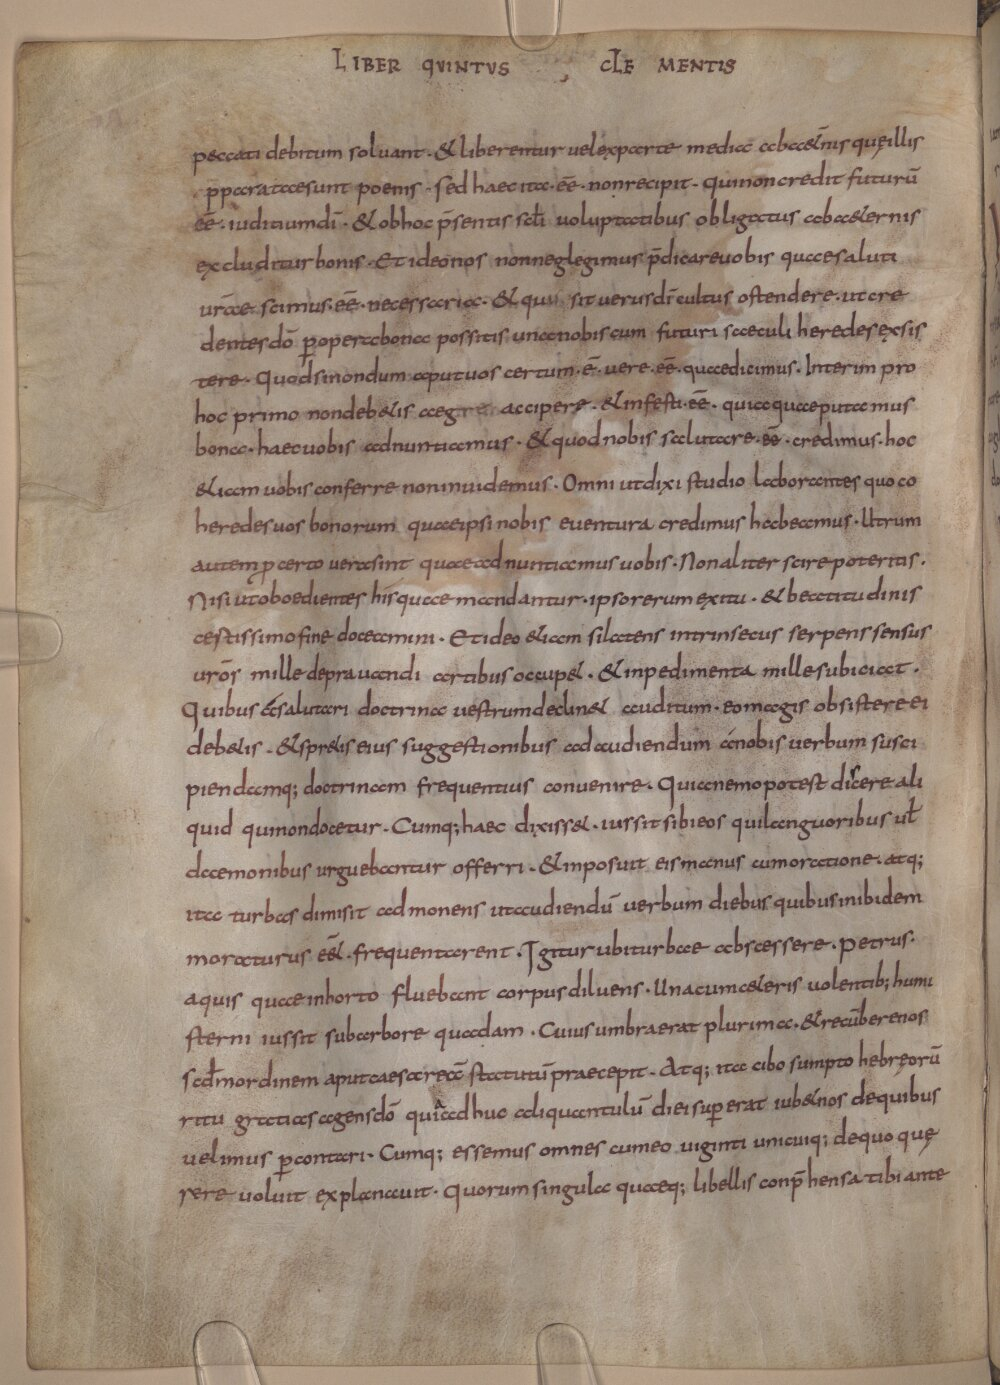 LIBER QVINTVS CLEMENTIS
peccati debitum soluant · & liberentur uel ex parte media ab aet̄nis quę illis
p̄parataesunt poenis · sed haec ita · eē · non recipit · qui non credit futurū
eē · iuditium dī · & ob hoc p̄sentis scłi uoluptatibus obligatus ab a&ernis
excluditur bonis · Et ideo nos non neglegimus p̄dicare uobis quae saluti
ur̄ae scimus · eē · necessaria · & qui sit uerus dī cultus ostendere · ut cre
dentes dō ꝑ opera bona possitis una nobiscum futuri saeculi heredes exsis
tere · Quod si nondum aput uos certum · ē · uere · eē · quae dicimus · Interim pro
hoc primo non deb&is aegre accipere · & infesti · eē · quia quae putamus
bona · haec uobis adnuntiamus · & quod nobis salutare · eē · credimus · hoc
&iam uobis conferre non inuidemus · Omni ut dixi studio laborantes quo co
heredes uos bonorum quae ipsi nobis euentura credimus habeamus · Utrum
autem ꝓ certo uera sint quae adnuntiamus uobis · Non aliter scire poteritis ·
Nisi ut oboedientes his quae mandantur · ipso rerum exitu · & beatitudinis
certissimo fine doceamini · Et ideo &iam si latens intrinsecus serpens sensus
ur̄os mille deprauandi artibus occup& · & inpedimenta mille subiciat ·
Quibus a salutari doctrina uestrum declin& auditum · eo magis obsistere ei
deb&is · & spr&is eius suggestionibus ad audiendum a nobis uerbum susci
piendamq; doctrinam frequentius conuenire · Quia nemo potest discere ali
quid qui non docetur · Cumq; haec dixiss& · iussit sibi eos qui languoribus uł
daemonibus urguebantur offerri · & inposuit eis manus cum oratione · atq;
ita turbas dimisit admonens ut audiendū uerbum diebus quibus inibidem
moraturus eēt · frequentarent · Igitur ubi turbae abscessere · Petrus ·
aquis quae in horto fluebant corpus diluens · Una cum c&eris uolentib; humi
sterni iussit sub arbore quadam · Cuius umbra erat plurima · & recūbere nos
scđm ordinem aput caesarea statutū praecepit · Atq; ita cibo sumpto hebręorū
ritu gratias agens dō quia adhuc aliquantulū diei suꝑerat iub& nos de quibus
uelimus ꝑcontari · Cumq; essemus omnes cum eo uiginti unicuiq; de quo quę
rere uoluit explanauit · Quorum singula quaeq; libellis conp̄hensa tibi ante